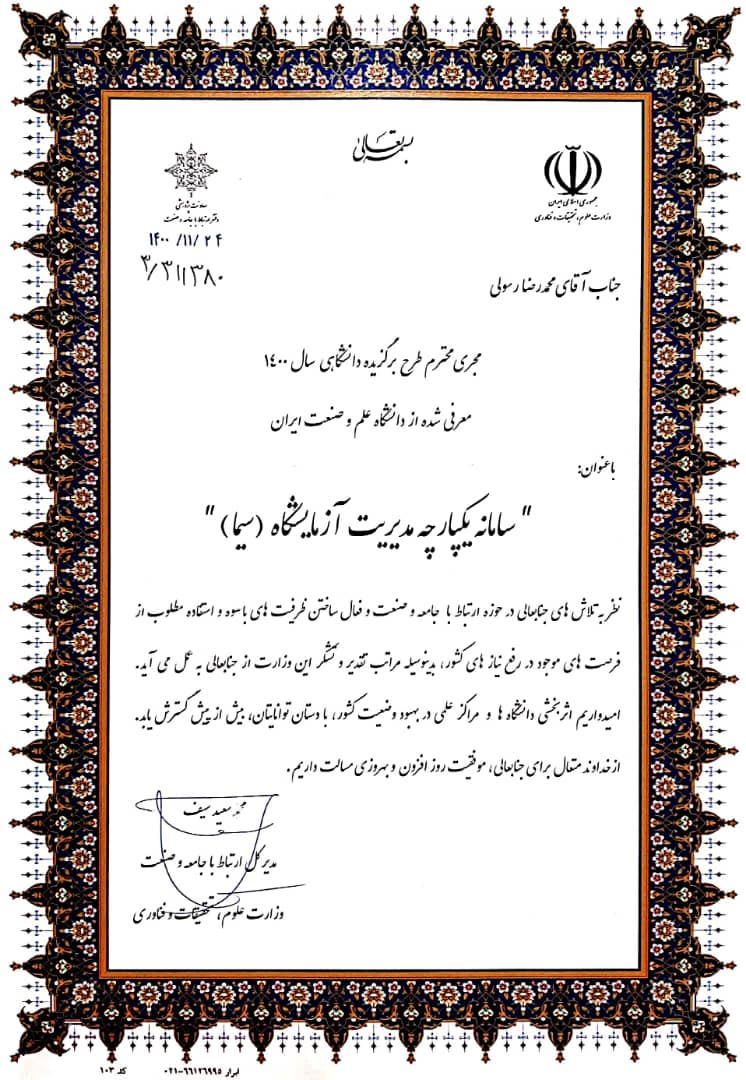 بسمه تعالی
جمهوری اسلامی ایران
وزارت علوم، تحقیقات و فناوری
معاونت پژوهشی
دفتر ارتباط با جامعه و صنعت
۱۴۰۰/۱۱/۲۴
۳/۳۱۱۳۸۰
جناب آقای محمدرضا رسولی
مجری محترم طرح برگزیده دانشگاهی سال ۱۴۰۰
معرفی شده از دانشگاه علم و صنعت ایران
با عنوان:
"سامانه یکپارچه مدیریت آزمایشگاه (سیما)"
نظر به تلاش های جنابعالی در حوزه ارتباط با جامعه و صنعت و فعال ساختن ظرفیت های بالقوه و استفاده مطلوب از
فرصت های موجود در رفع نیاز های کشور، بدینوسیله مراتب تقدیر و تشکر این وزارت از جنابعالی به عمل می آید.
امیدواریم اثربخشی دانشگاه ها و مراکز علمی در بهبود وضعیت کشور، با دستان توانایتان، بیش از پیش گسترش یابد.
از خداوند متعال برای جنابعالی، موفقیت روز افزون و بهروزی مسالت داریم.
محمد سعید سیف
مدیر کل ارتباط با جامعه و صنعت
وزارت علوم، تحقیقات و فناوری
ابرار ۶۶۱۲۶۹۹۵-۰۲۱ کد ۱۰۳